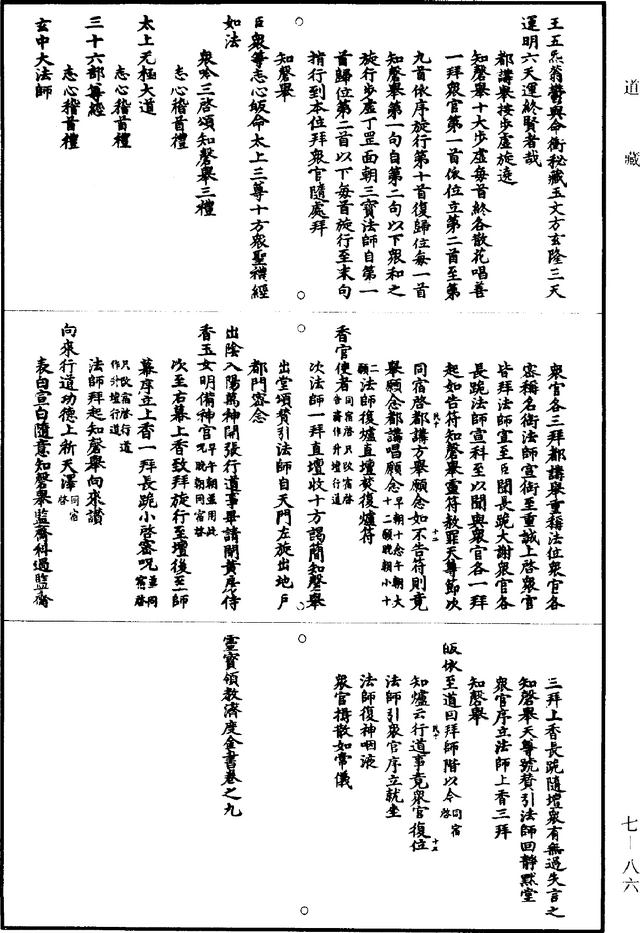 道藏
王五炁翁鬱與命銜秘藏玉文方玄隆三天
運明六天運終賢者哉
都講舉按步虛旋遶
知磬舉十大步虛每首終各散花唱善
一拜衆官第一首依位立第二首至第
九首依序旋行第十首復歸位每一首
知磬舉第一句自第二句以下衆和之
旋行步虛丁罡面朝三寶法師自第一
首歸位第二首以下每首旋行至末句
揖行到本位拜衆官隨處拜
知磬舉
臣衆等志心皈命太上三尊十方衆聖禮經
如法
衆吟三啓頌知磬舉三禮
志心稽首禮
太上无極大道
志心稽首禮
三十六部尊經
志心稽首禮
玄中大法師
衆官各三拜都講舉重稱法位衆官各
密稱名銜法師宣銜至重誠上啓衆官
皆拜法師宣至臣聞長跪大謝衆官各
長跪法師宣科至以聞與衆官各一拜
起如告符知磬舉靈符赦罪天尊節次
同宿啓都講方舉願念如不告符則竟
舉願念都講唱願念早朝十念午朝大十二願晚朝小十二願
法師復爐直壇焚復爐符
香官使者同宿啓只改宿啓各齋作升壇行道
次法師一拜直壇收十方謁簡知磬舉
出堂頌贊引法師自天門左旋出地户
都門密念
出陰入陽萬神開張行道事畢請閉黄房侍
香玉女明備神官早午朝並用此咒晚朝同宿啓
次至右幕上香致拜旋行至壇後至師
幕序立上香一拜長跪小啓密咒並同宿啓
只改宿啓行道作升壇行道
法師拜起知磬舉向來讚
向來行道功德上祈天澤同宿啓
表白宣白隨意知磬舉監齋科過監齋
三拜上香長跪隨壇衆有無過失言之
知磬舉天尊號贊引法師回靜默堂
衆官序立法師上香三拜
知磬舉
皈依至道回拜師階以今同宿啓
知爐云行道事竟衆官復位
法師引衆官序立就坐
法師復神咽液
衆官揖散如常儀
靈寶領教濟度金書卷之九
七—八六